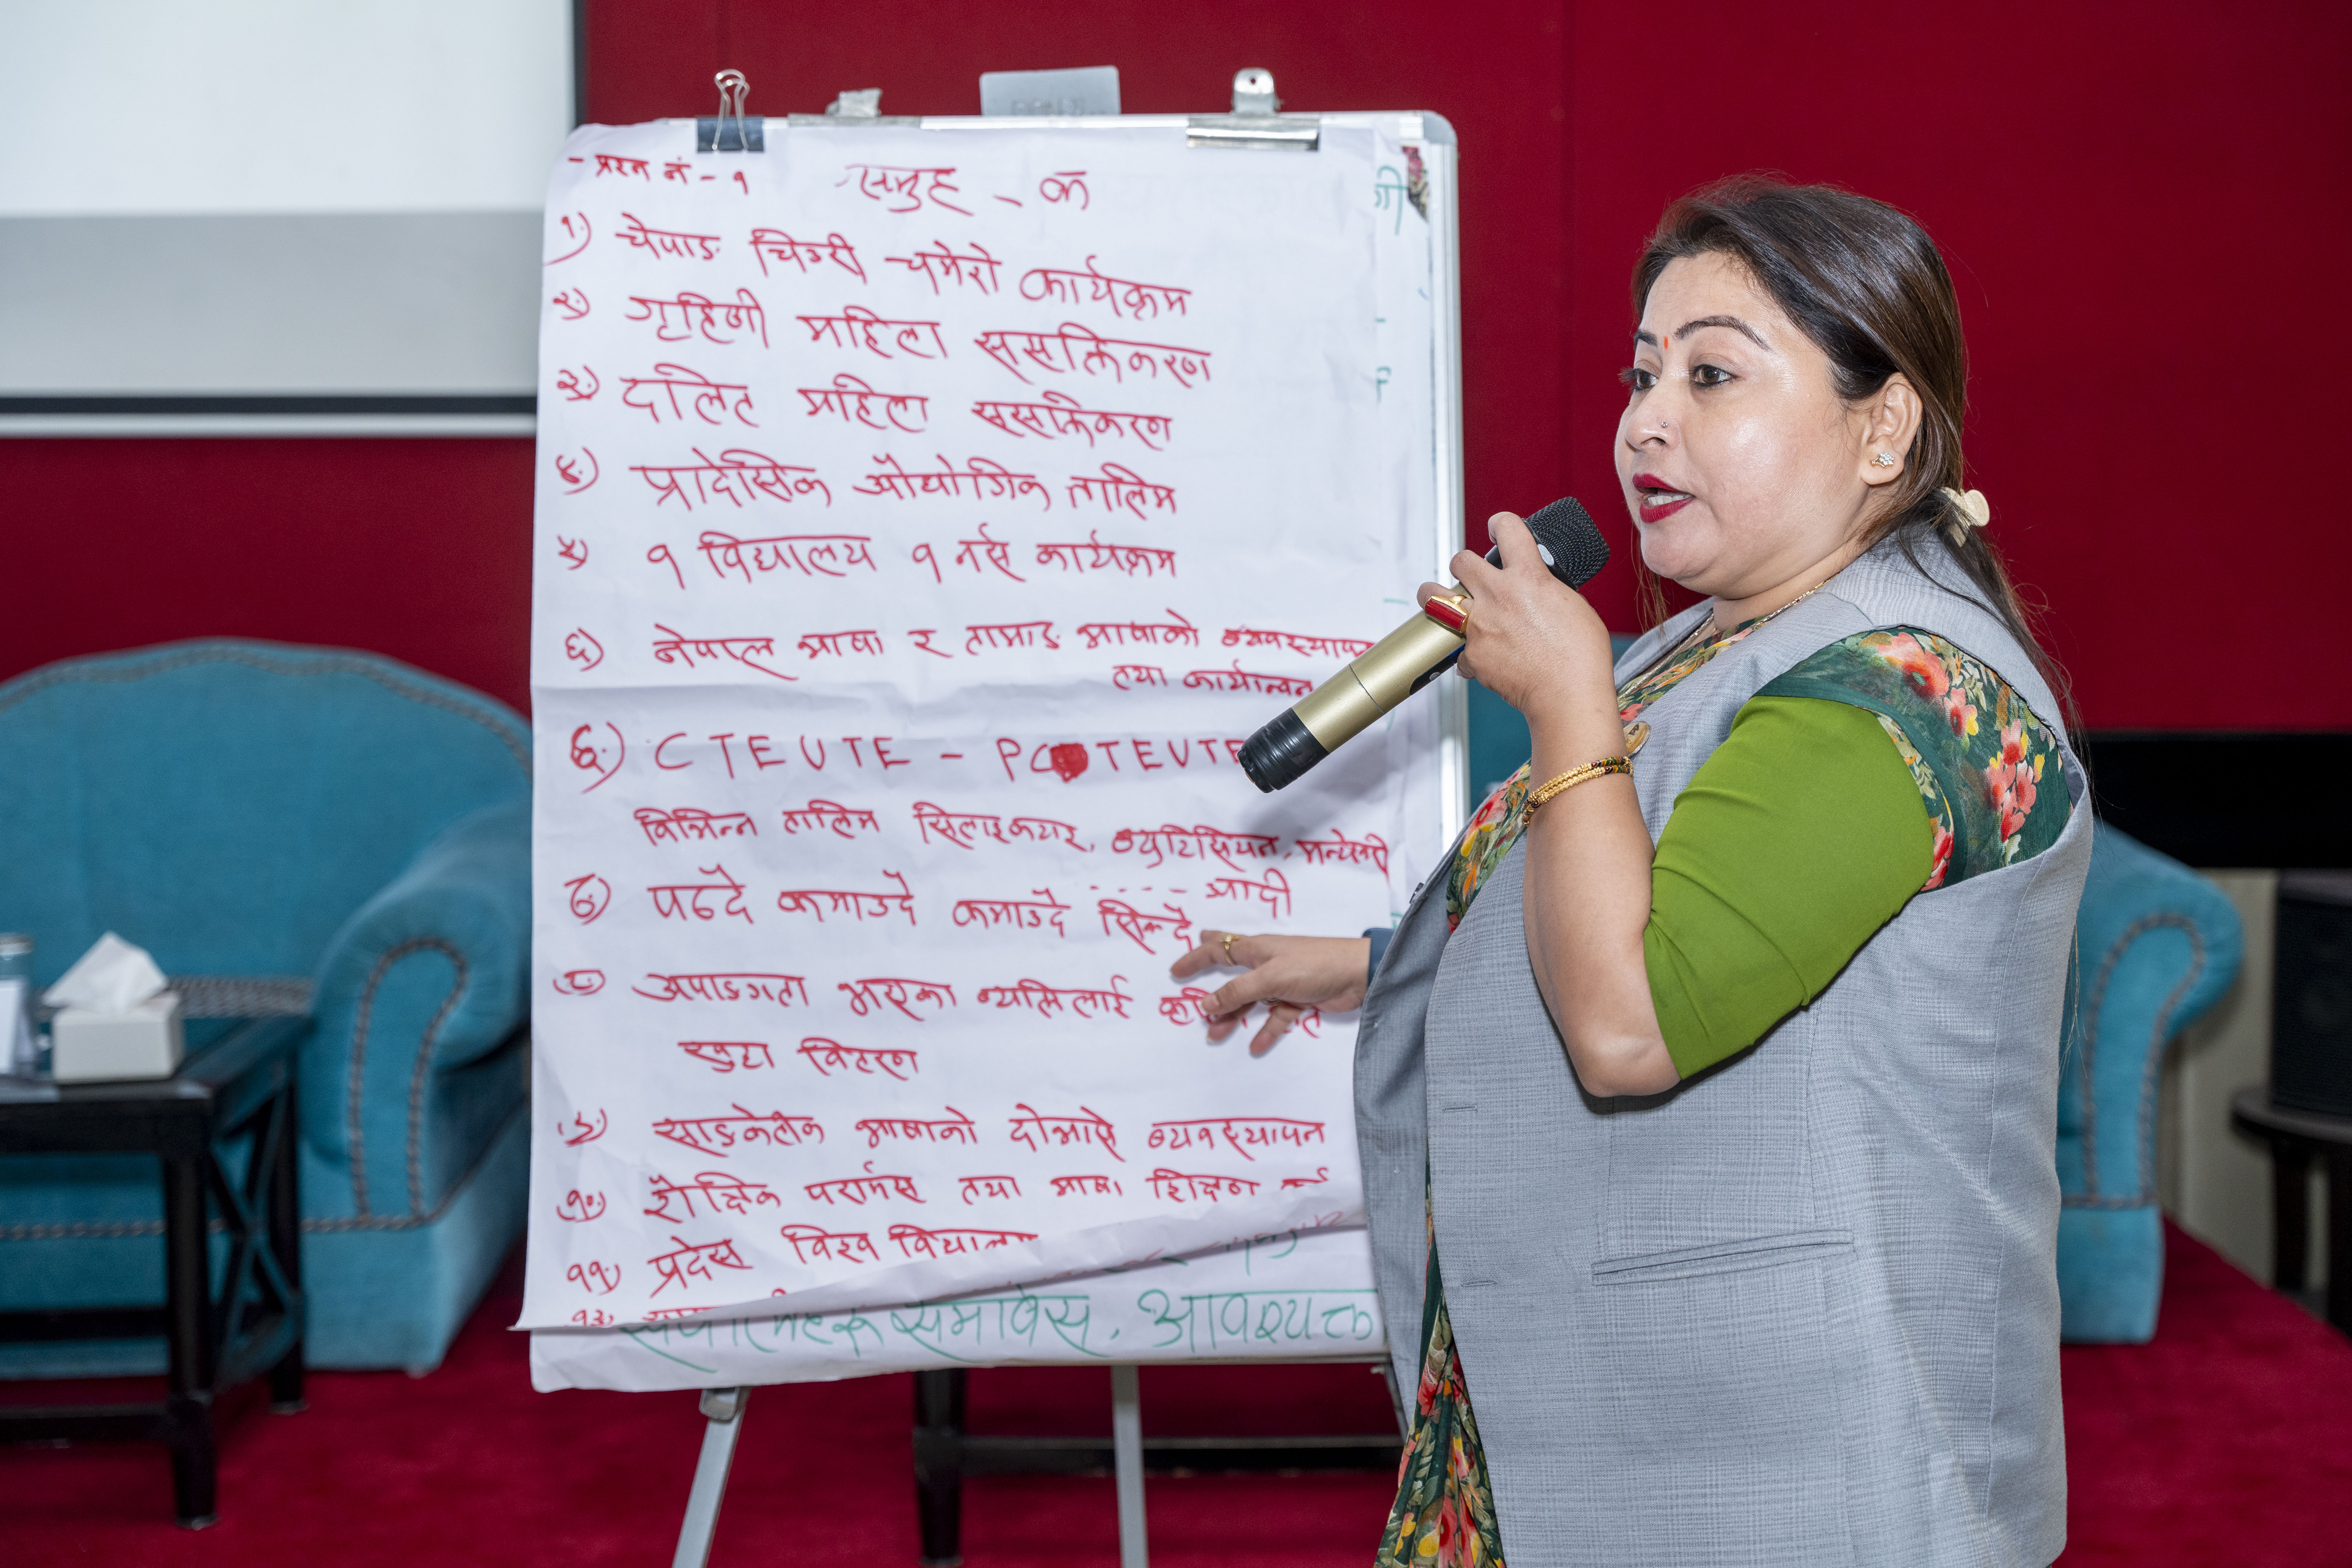 - प्रश्न नं - १ समुह - क
१) चेपाङ चिउरी चमेरो कार्यक्रम
२) गृहिणी महिला ससक्तिकरण
३) दलित महिला ससक्तिकरण
४) प्रादेसिक औद्योगिक तालिम
५) १ विद्यालय १ नर्स कार्यक्रम
६) नेपाल भाषा र तामाङ भाषाको
तथा कार्यान्वन
६) CTEVTE - PCTEVTE
विभिन्न तालिम सिलाइकटाइ, ब्युटिसियन,
.... आदी
८) पढ्दै कमाउदै कमाउदै सिक्दै
८) अपाङगता भएका व्यक्तिलाई
वितरण
९) साङकेतीक भाषाको दोभासे व्यवस्थापन
१०) शैक्षिक परार्मस तथा भाषा शिक्षण
११) प्रदेस विश्व विद्यालय
समावेस, आवश्यक